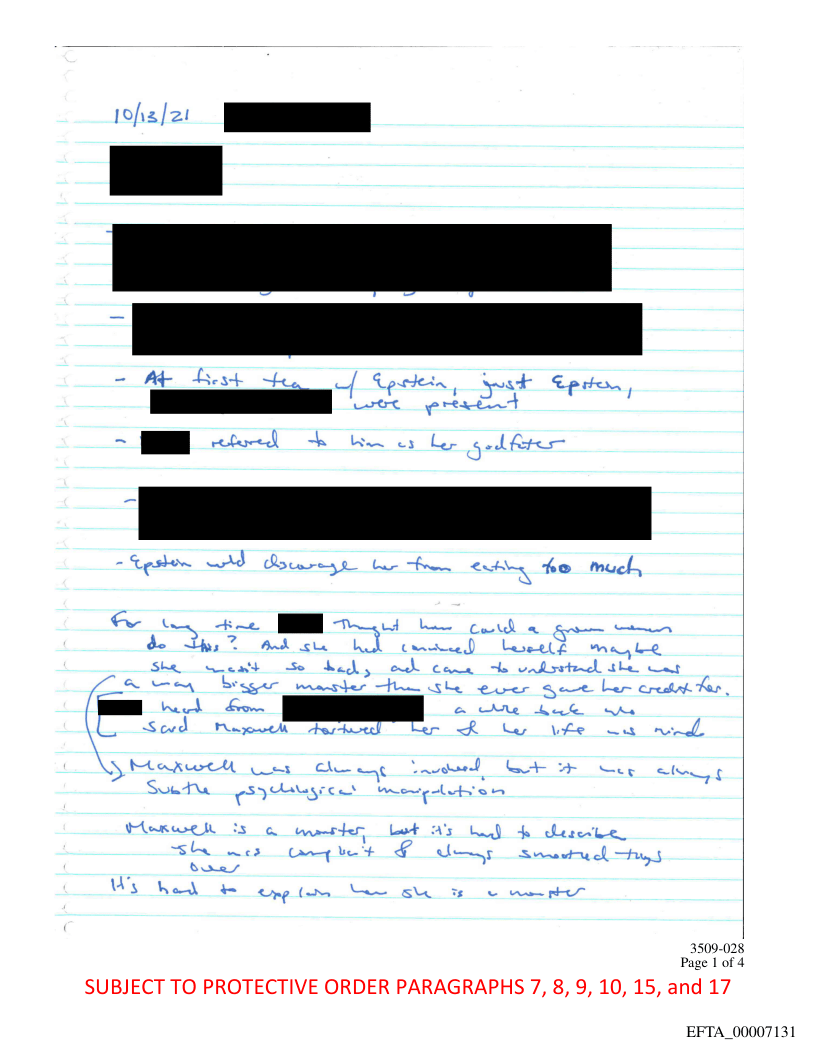 10/13/21
-
-
- At first tea w/ Epstein, just Epstein,
were present
- referred to him as her godfather
-
- Epstein wld discourage her from eating too much
For long time Thought how could a grown woman
do this? And she had convinced herself maybe
she wasn't so bad, and came to understand she was
a way bigger monster than she ever gave her credit for.
heard from a while back who
said Maxwell tortured her & her life was ruined
Maxwell was always involved, but it was always
subtle psychological manipulation
Maxwell is a monster, but it's hard to describe
she was complicit & always smoothed things
over
It's hard to explain how she is a monster
3509-028
Page 1 of 4
SUBJECT TO PROTECTIVE ORDER PARAGRAPHS 7, 8, 9, 10, 15, and 17
EFTA_00007131